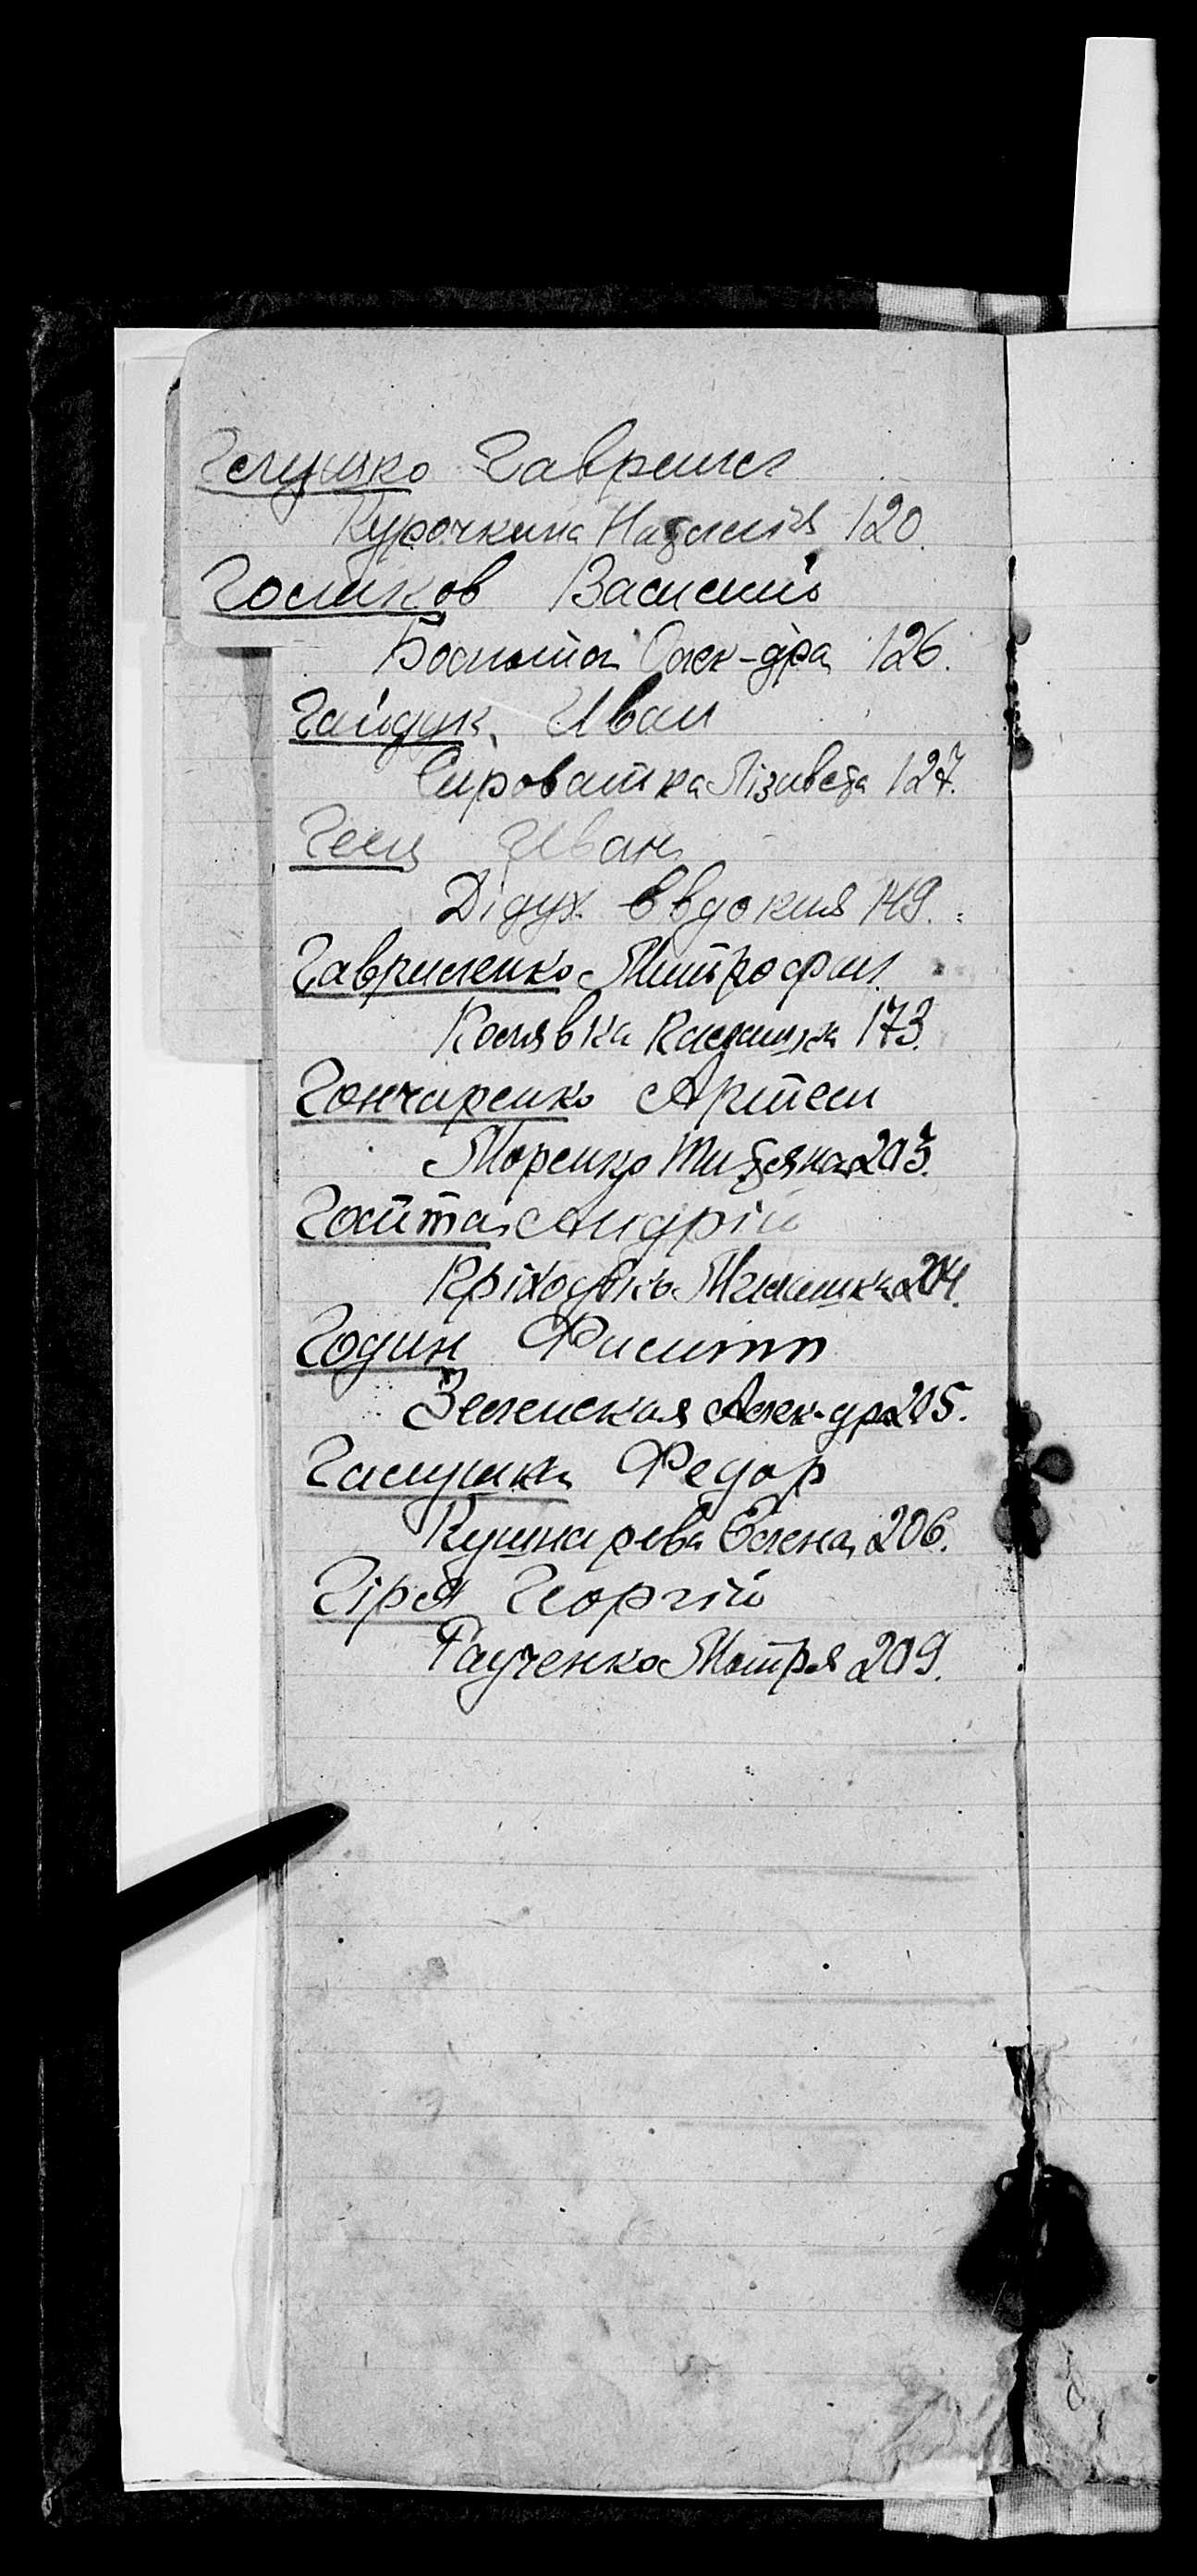 Гелушко Гаврило
Курочкина Наталія 120.
Голиков Василий
Олек-дра 126.
Гайдук Иван
Сироватка Лізавета 127.
Геец Иван
Дідух Евдокия 149.
Гавриленко Митрофан
Колявка 173.
Гончаренко Артем
Моренко Татяна 203.
Гойта Андрій
Кріходько 204.
Годин Филипп
Зеленская Алек-дра 205.
Галушка Федор
Кушнарева Елена 206.
Гіря Георгій
Раученко Мотря 209.